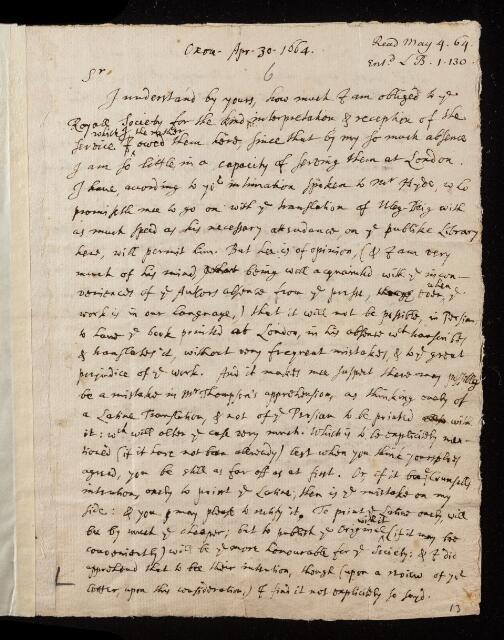 Oxon. Apr. 30. 1664.
Read May 4. 64.
Ent.d L B. 1. 130.
6
Sr,
I understand by yours, how much I am obliged to ye
Royall Society for the kind interpretation & reception of the
service which I the rather owed them here, since that by my so much absence
I am so little in a capacity of serving them at London.
I have according to yr intimation spoken to Mr Hyde, who
promiseth mee to go on with ye translation of Uleg Beig with
as much speed as his necessary attendance on ye publike Library
here, will permit him. But hee is of opinion, (& I am very
much of his mind, being well acquainted with ye incon-
veniences of ye Authors absence from ye presse, even, when ye
work is in our Language,) that it will not be possible, in Persian
to have ye book printed at London, in his absence wch transcribes
& translates it, without very frequent mistakes, & to ye great
prejudice of ye work. And it makes mee suspect there may possibly
be a mistake in Mr Thompson's apprehension, as thinking onely of
a Latine Translation, & not of ye Persian to be printed with
it: wch will alter ye case very much. Which is to be explicitely men-
tioned (if it have not been already) lest when you think yourselves
agreed, you be still as far off as at first. Or if it bee ye Counsells
intention, onely to print ye Latine; then is ye mistake on my
side: & you may please to rectify it. To print ye Latine onely, will
bee by much ye cheaper; but to publish ye Original with it (if it may bee
conveniently) will be ye more honourable for ye Society: & I did
apprehend that to bee their intention, though (upon a review of yr
letter, upon this consideration,) I find it not explicitly so sayd.
13